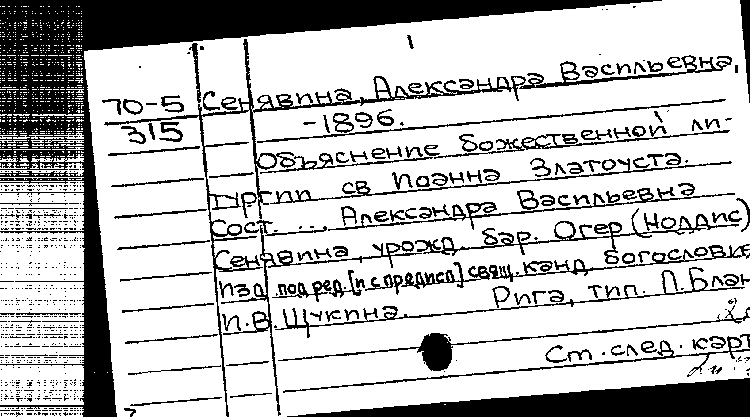 1
70-5 Сенявина, Александра Васильевна,
315 -1896.
Объяснение божественной ли-
тургии св Иоанна Златоуста.
Сост. ... Александра Васильевна
Сенявина, урожд. бар. Огер (Ноддис)
изд под ред. [и с предисл] свящ. канд. богословие
И.В. Щукина. Рига, тип. Л. Блан
Ст. след. карт